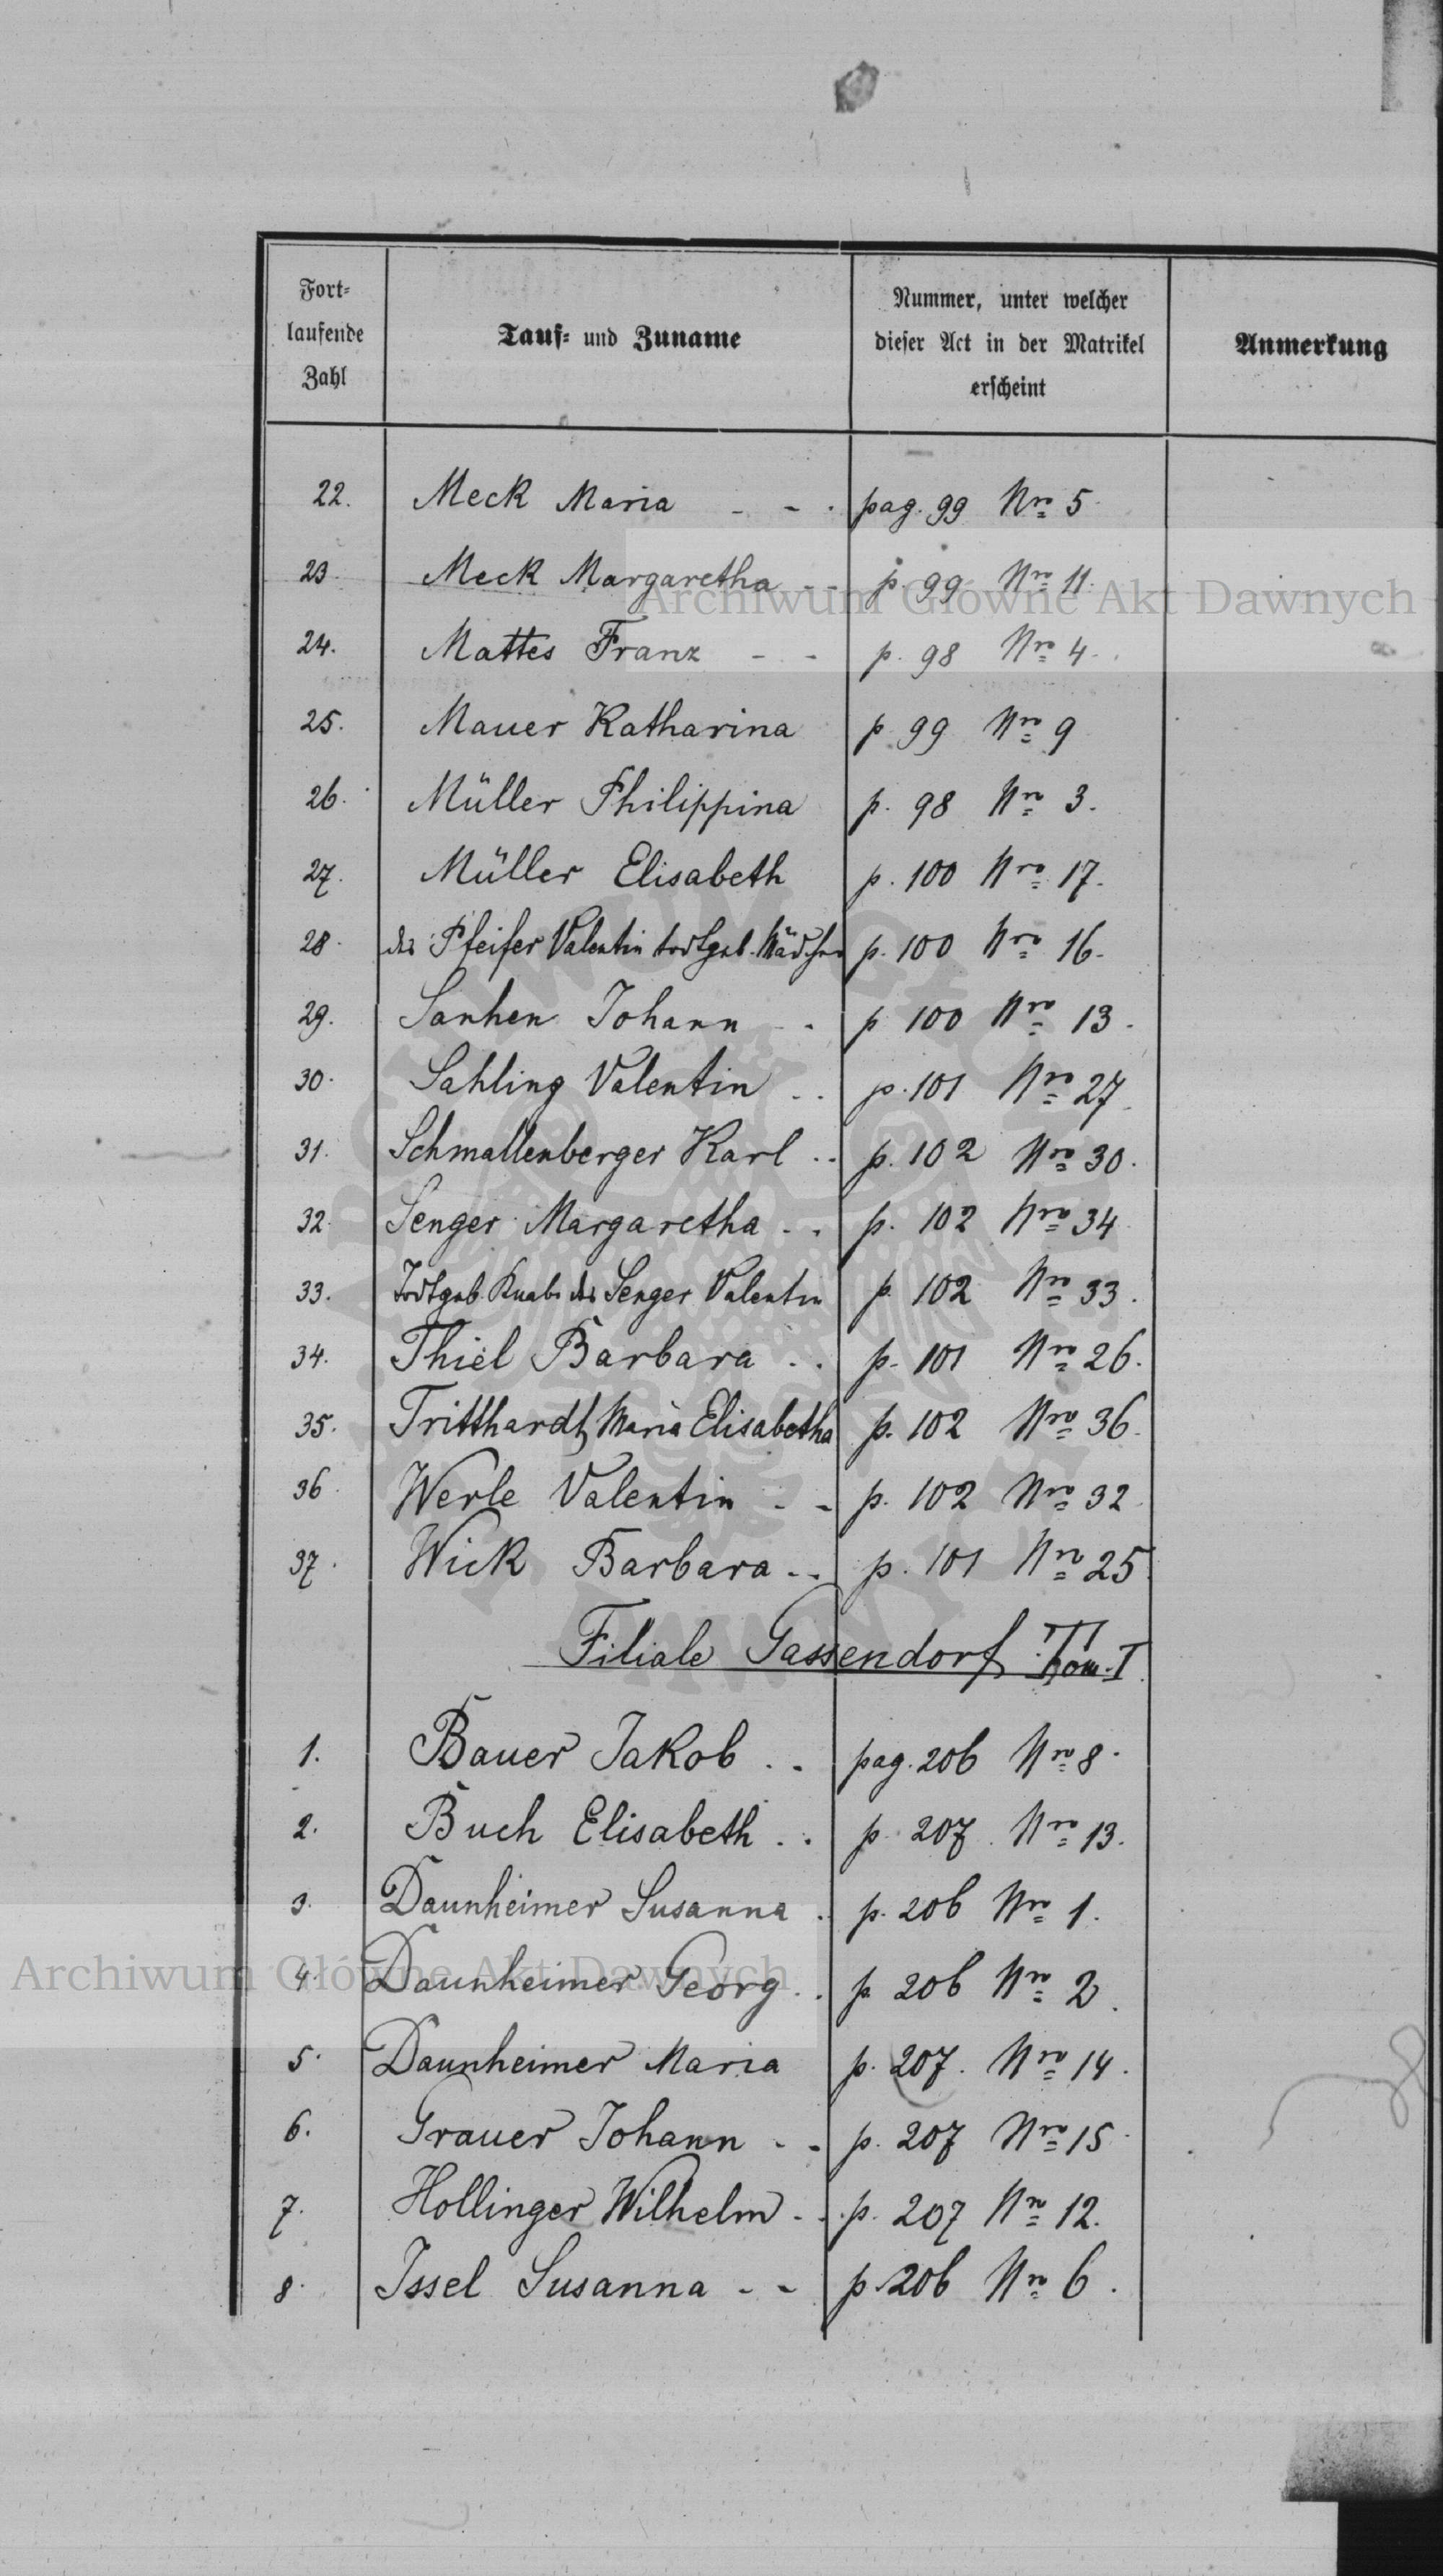 Fort-
laufende
Zahl
Tauf- und Zuname
Nummer, unter welcher
dieser Act in der Matrikel
erscheint
Anmerkung
22. Meck Maria - - . pag. 99 Nro 5
23. Meck Margaretha - - p. 99 Nro 11.
24. Mattes Franz - - p. 98 Nro 4.
25. Mauer Katharina p 99 Nro 9
26. Müller Philippina p. 98 Nro 3.
27. Müller Elisabeth p. 100 Nro 17.
28. des Pfeifer Valentin todtgeb. Mädchen p. 100 Nro 16.
29. Sanhen Johann - . p 100 Nro 13.
30. Sahling Valentin . . p. 101 Nro 27
31. Schmallenberger Karl . . p. 102 Nro 30.
32. Senger Margaretha . . p. 102 Nro 34
33. Todtgeb. Knabe des Senger Valentin p. 102 Nro 33.
34. Thiel Barbara . . p. 101 Nro 26.
35. Tritthardt Maria Elisabetha p. 102 Nro 36.
36. Werle Valentin - - p. 102 Nro 32
37. Wick Barbara . . p. 101 Nro 25
Filiale Gassendorf Tom. I.
1. Bauer Jakob . . pag. 206 Nro 8.
2. Buch Elisabeth . . p. 207. Nro 13.
3. Daunheimer Susanna . p. 206 Nro 1.
4. Daunheimer Georg . . p. 206 Nro 2.
5. Daunheimer Maria p. 207. Nro 14.
6. Grauer Johann - - p. 207 Nro 15
7. Hollinger Wilhelm - . p. 207 Nro 12.
8. Issel Susanna - - p. 206 Nro 6.
Archiwum Główne Akt Dawnych
Archiwum Główne Akt Dawnych